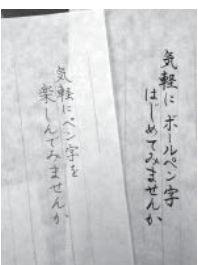 気軽に ボールペン字
はじめてみませんか
気軽にペン字を
楽しんでみませんか